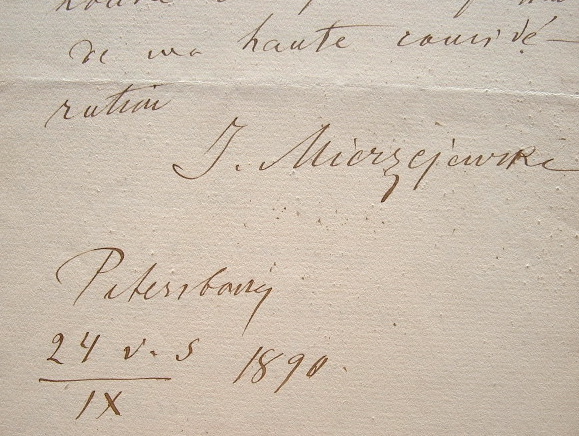 de ma haute considé-
ration
J. Mierzejewski
Petersbourg
24 v. s 1890.
IX